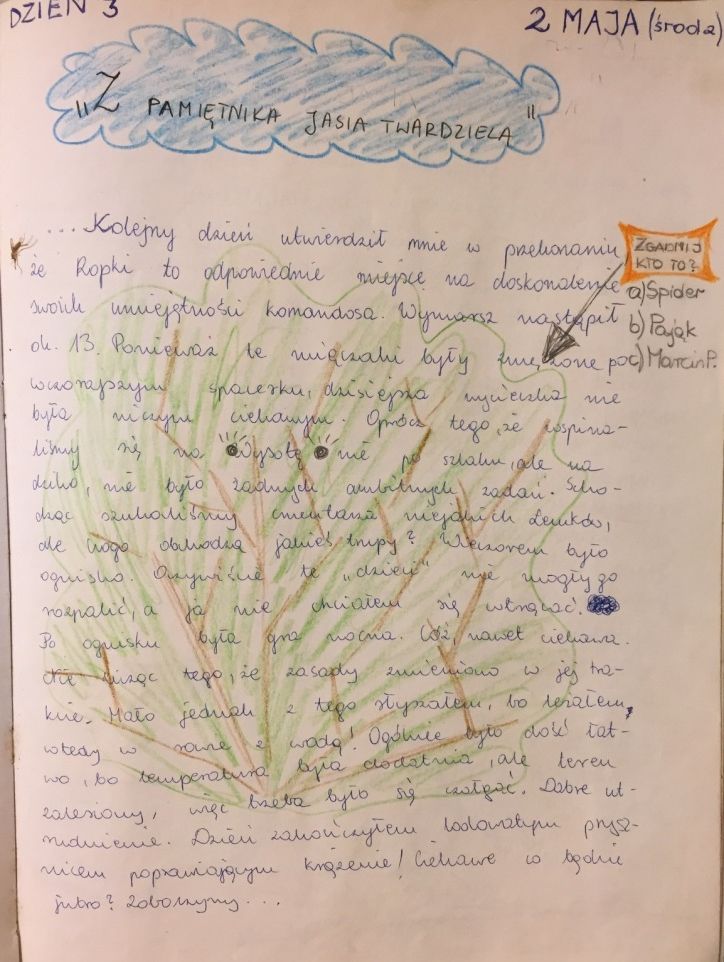 DZIEŃ 3
2 MAJA (środa)
"Z PAMIĘTNIKA JASIA TWARDZIELA"
... Kolejny dzień utwierdził mnie w przekonaniu
że Ropki to odpowiednie miejsce na doskonalenie
swoich umiejętności komandosa. Wymarsz nastąpił
ok. 13. Ponieważ te mięczaki były zmęczone po
wczorajszym spacerku, dzisiejsza wycieczka nie
była niczym ciekawym. Oprócz tego, że wspina-
liśmy się na Wysotę nie po szlaku, ale na
dziko, nie było żadnych ambitnych zadań. Scho-
dząc szukaliśmy cmentarza niejakich Łemków,
ale kogo obchodzą jakieś trupy? Wieczorem było
ognisko. Oczywiście te "dzieci" nie mogły go
rozpalić, a ja nie chciałem się wtrącać.
Po ognisku była gra nocna. Cóż, nawet ciekawa.
Nie licząc tego, że zasady zmieniono w jej tra-
kcie. Mało jednak z tego słyszałem, bo leżałem
wtedy w rowie z wodą! Ogólnie było dość łat-
wo, bo temperatura była dodatnia, ale teren
zalesiony, więc trzeba było się czołgać. Dobre ut-
rudnienie. Dzień zakończyłem lodowatym prysz-
nicem poprawiającym krążenie! Ciekawe co będzie
jutro? Zobaczymy...
ZGADNIJ
KTO TO?
a) Spider
b) Pająk
c) Marcin P.